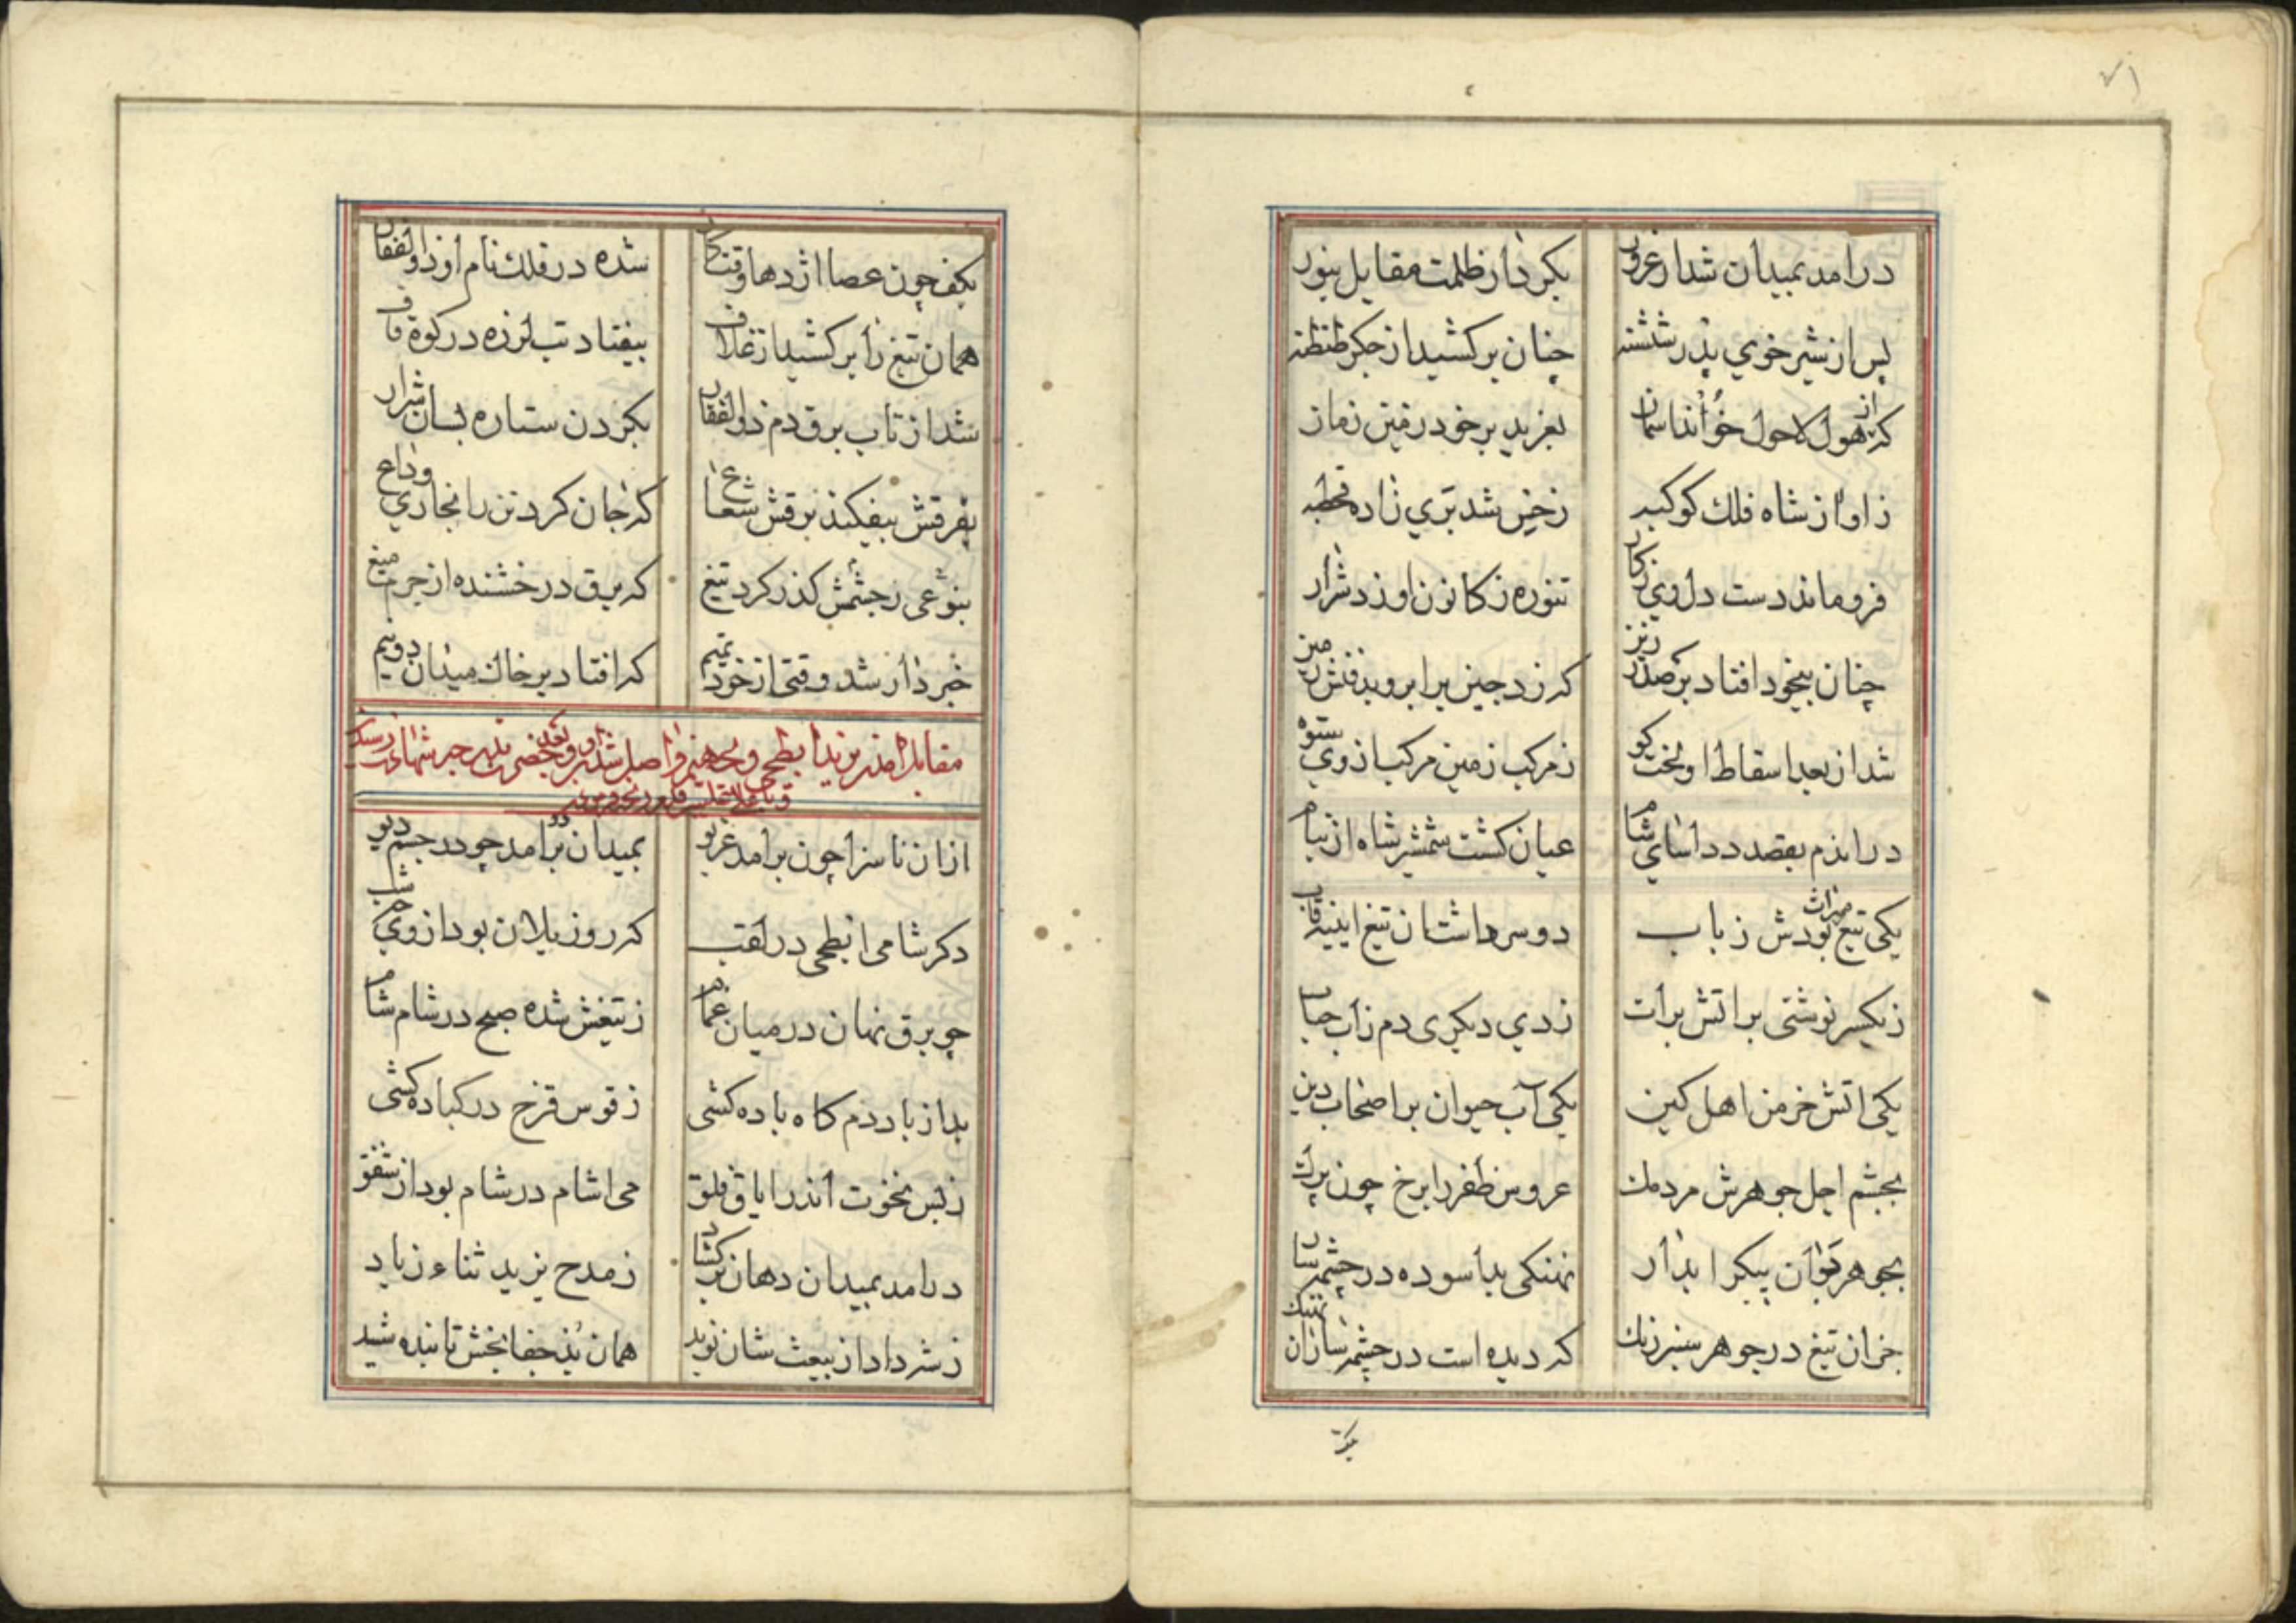 ۷۱
درامد بمیدان شد از غرور بکردار ظلمت مقابل بنور
پس از شیر خوي پدر شنشنه چنان برکشید از جکر طنطنه
که از هول لاحول خواند اسمان بغرید بر خود زمین زمان
ز اواز شاه فلك کوکبه زخین شد بری زاده قحطبه
فروماند دست دل وي زکار تنوره ز کانون او زد شرار
چنان بیخود افتاد بر صدر زین که زد جین بر ابروبد نفش مین
شد از بعد اسقاط او لخت کوه ز مرکب زمین مرکب از وي ستوه
در اندم بقصد دد اساي شام عیان کشت شمشیر شاه از نیام
یکی تیغ میراث بودش ز باب دو سر داشت ان تیغ ایینه قاب
ز یکسر نوشتی بر اتش برات زدي دیکری دم ز آب حیات
یکی اتش خرمن اهل کین یکی آب حیوان بر اصحاب دین
بجشم اجل جوهرش مردمك عروس ظفر را برخ چون پرك
بجوهر توان پیکر ابدار نهنکی بد اسوده در چشمه سار
جز ان تیغ در جوهر سبز رنك که دیده است در چشمه ساران نهنك
یکف
بکف چون عصا اژدها وقت کار شده در فلك نام او ذو الفقار
همان تیغ را برکشید از غلاف بیفتاد تب لرزه در کوه قاف
شد از تاب برق دم ذو الفقار بکردن ستاره بسان شرار
بفرقش بیفکند برقش شعاع که جان کرد تن را بجاري وداع
بنوعی ز جشمش کذر کرد تیغ که برق درخشنده از جرم میغ
خبردار شد وقتی از خود تمیم که افتاد بر خاك میدان دو نیم
مقابله امدن یزید ابطحی و بجهنم واصل شدن او و بعد
ازان ناسزا چون برامد غریو بمیدان برامد چو دد جسم دیو
دکر شامی ابطحی در لقب که روز یلان بود از وي چو شب
چو برق نهان در میان غمام ز تیغش شده صبح در شام شام
بد از باد دم کاه باده کشی ز قوس قزح در کباده کشی
ز بس نخوت اندر ایاق فلق می اشام در شام بود از شفق
درامد بمیدان دهان بر کشاد ز مدح یزید ثناء زیاد
ز شر داد از بیعت شان نوید همان بد جفا بخش تابنده شید